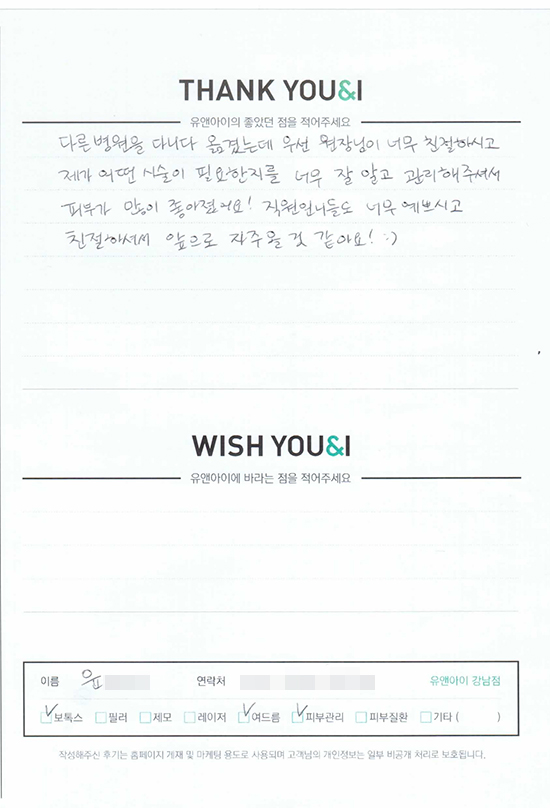 THANK YOU&I
유앤아이의 좋았던 점을 적어주세요
다른병원을 다니다 옮겼는데 우선 원장님이 너무 친절하시고
제가 어떤 시술이 필요한지를 너무 잘 알고 관리해주셔서
피부가 많이 좋아졌어요! 직원언니들도 너무 예쁘시고
친절하셔서 앞으로 자주올것 같아요! :)
WISH YOU&I
유앤아이에 바라는 점을 적어주세요
이름 연락처 유앤아이 강남점
보톡스 필러 제모 레이저 여드름 피부관리 피부질환 기타 ( )
작성해주신 후기는 홈페이지 게재 및 마케팅 용도로 사용되며 고객님의 개인정보는 일부 비공개 처리로 보호됩니다.